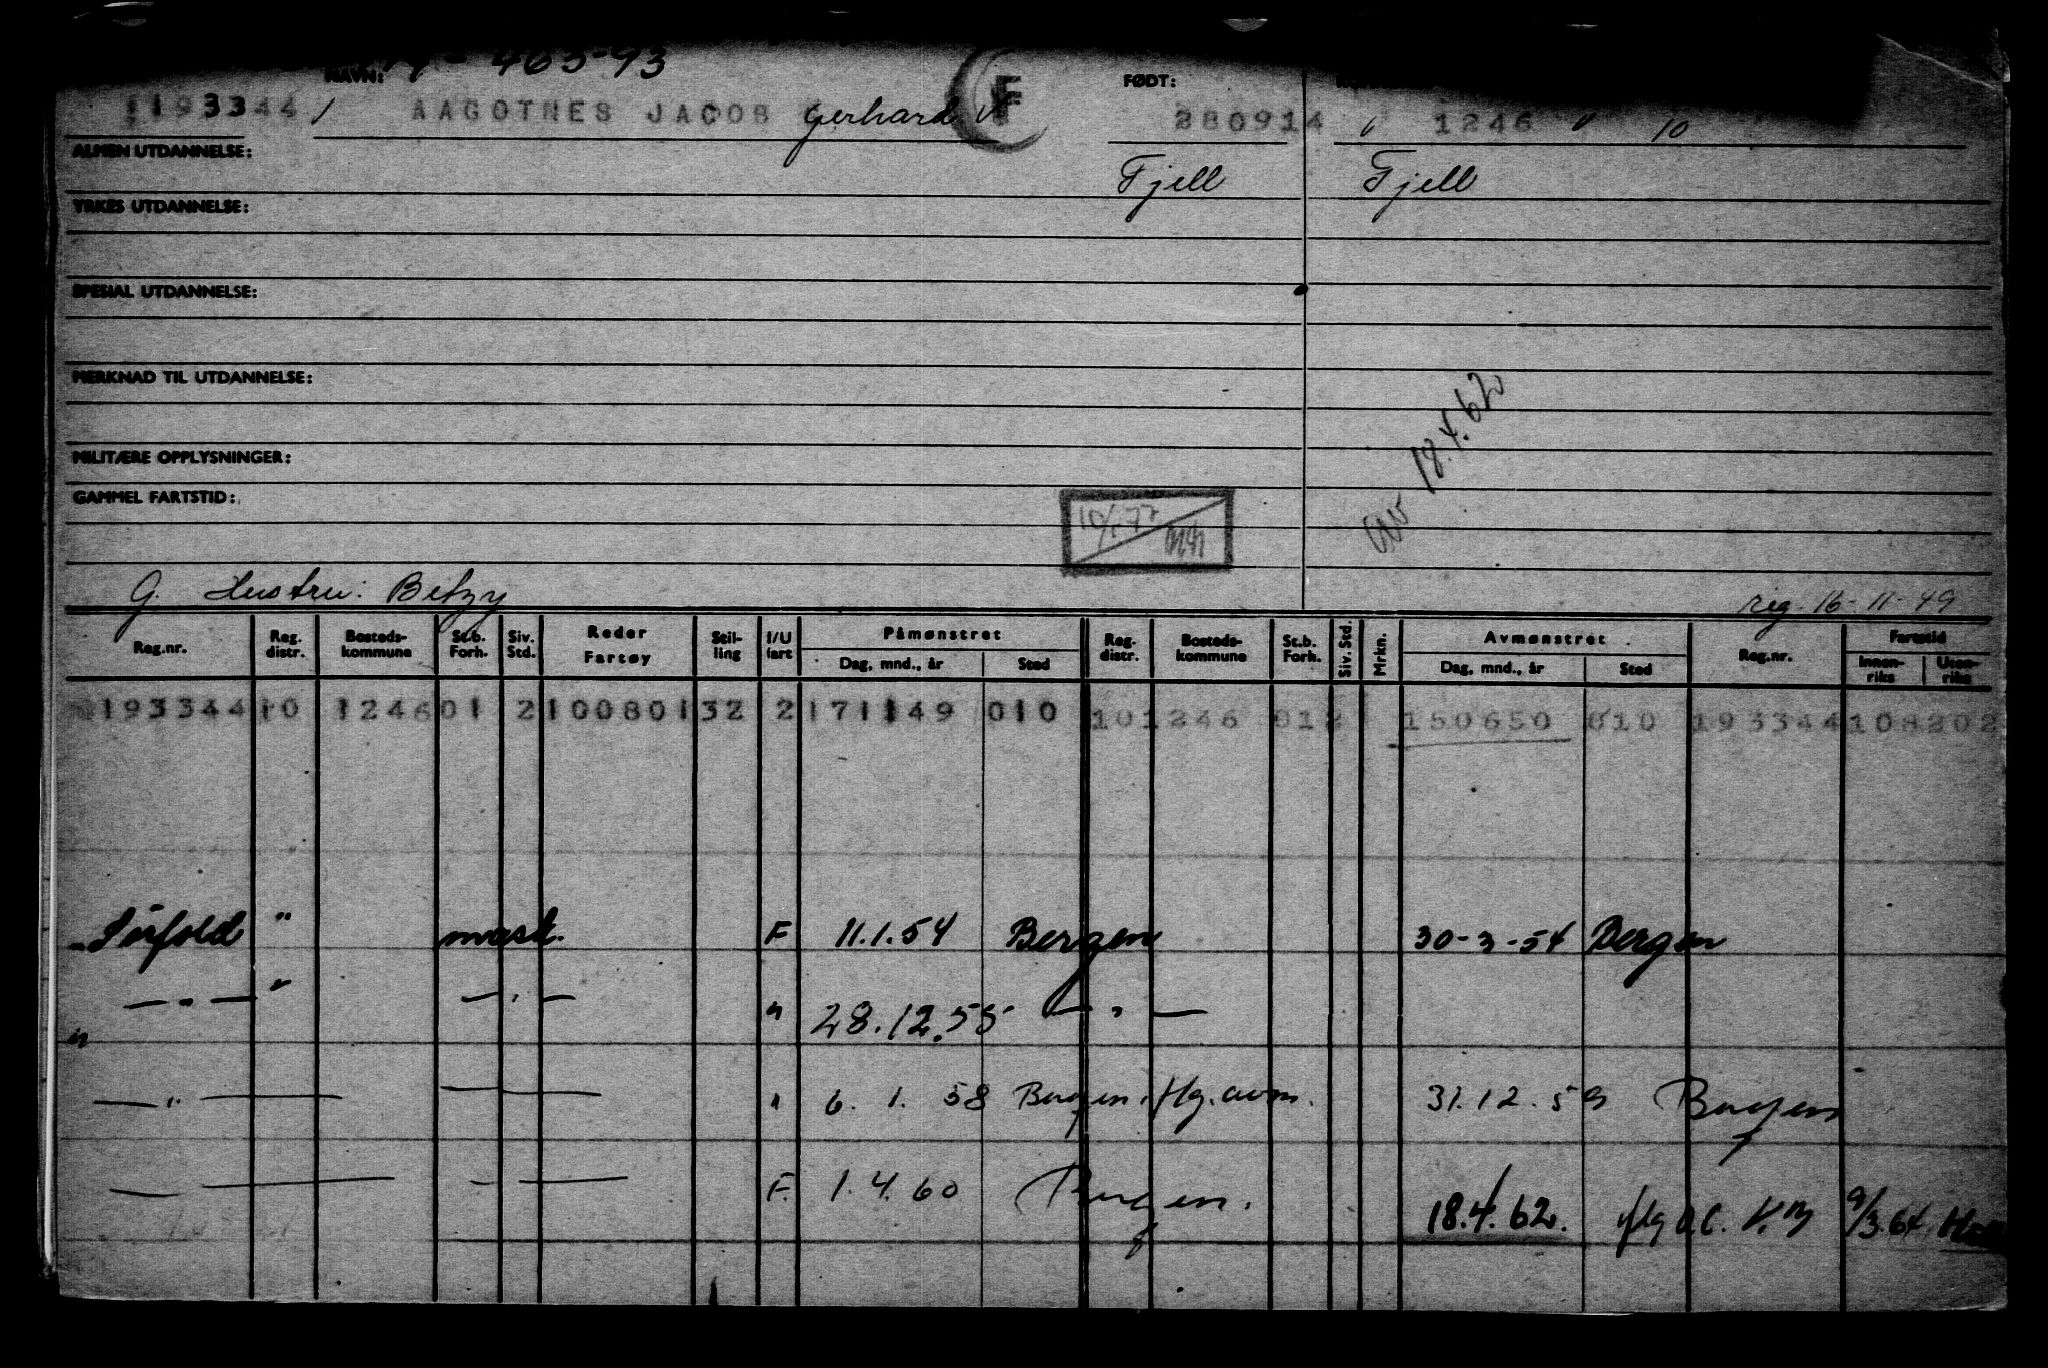 463-93
NAVN: FØDT:
1193344 / AAGOTNES JACOB Gerhard F 280914 " 1246 " 10
ALMEN UTDANNELSE: Fjell Fjell
YRKES UTDANNELSE:
SPESIAL UTDANNELSE:
MERKNAD TIL UTDANNELSE:
av 18.4.62
MILITÆRE OPPLYSNINGER:
GAMMEL FARTSTID:
G. Hustru: Betzy reg. 16-11-49
Reg.nr. Reg. distr. Bosteds-kommune St.b. Forh. Siv. Std. Reder Fartøy Stil-ling I/U fart Påmønstret Dag, mnd., år Sted Reg. distr. Bosteds-kommune St.b. Forh. Siv. Std. Mrkn. Avmønstret Dag, mnd., år Sted Reg.nr. Fartstid Innen-riks Uten-riks
193344 10 1246 01 2 1008013 32 2 171149 010 10 1246 012 150650 010 193344 108202
Sørfold " mask. F 11.1.54 Bergen 30-3-54 Bergen
— " — " — " — " 28.12.55 — " —
— " — — " 6. 1. 58 Bergen. flg. avm. 31.12.59 Bergen
— — — — F. 1.4.60 Bergen. 18.4.62. flg 9/3.64